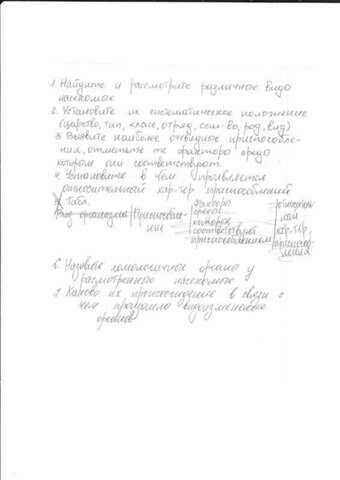 1. Найдите и рассмотрите различные виды
насекомых
2. Установите их систематическое положение
(царство, тип, класс, отряд, сем-во, род, вид)
3. Выявите наиболее очевидные приспособле-
ния, отметьте те факторы среды
которым они соответствуют
4. Установите в чем проявляется
относительный хар-тер приспособлений
5. Табл.
Вид организма | Приспособле-
ние | факторы
среды
которым
соответствует
приспособлением | относитель
ный
хар-тер
приспособ
ления
6. Назовите гомологичные органы у
рассмотренных насекомых
7. Каково их происхождение в связи с
чем произошло видоизменение
органов